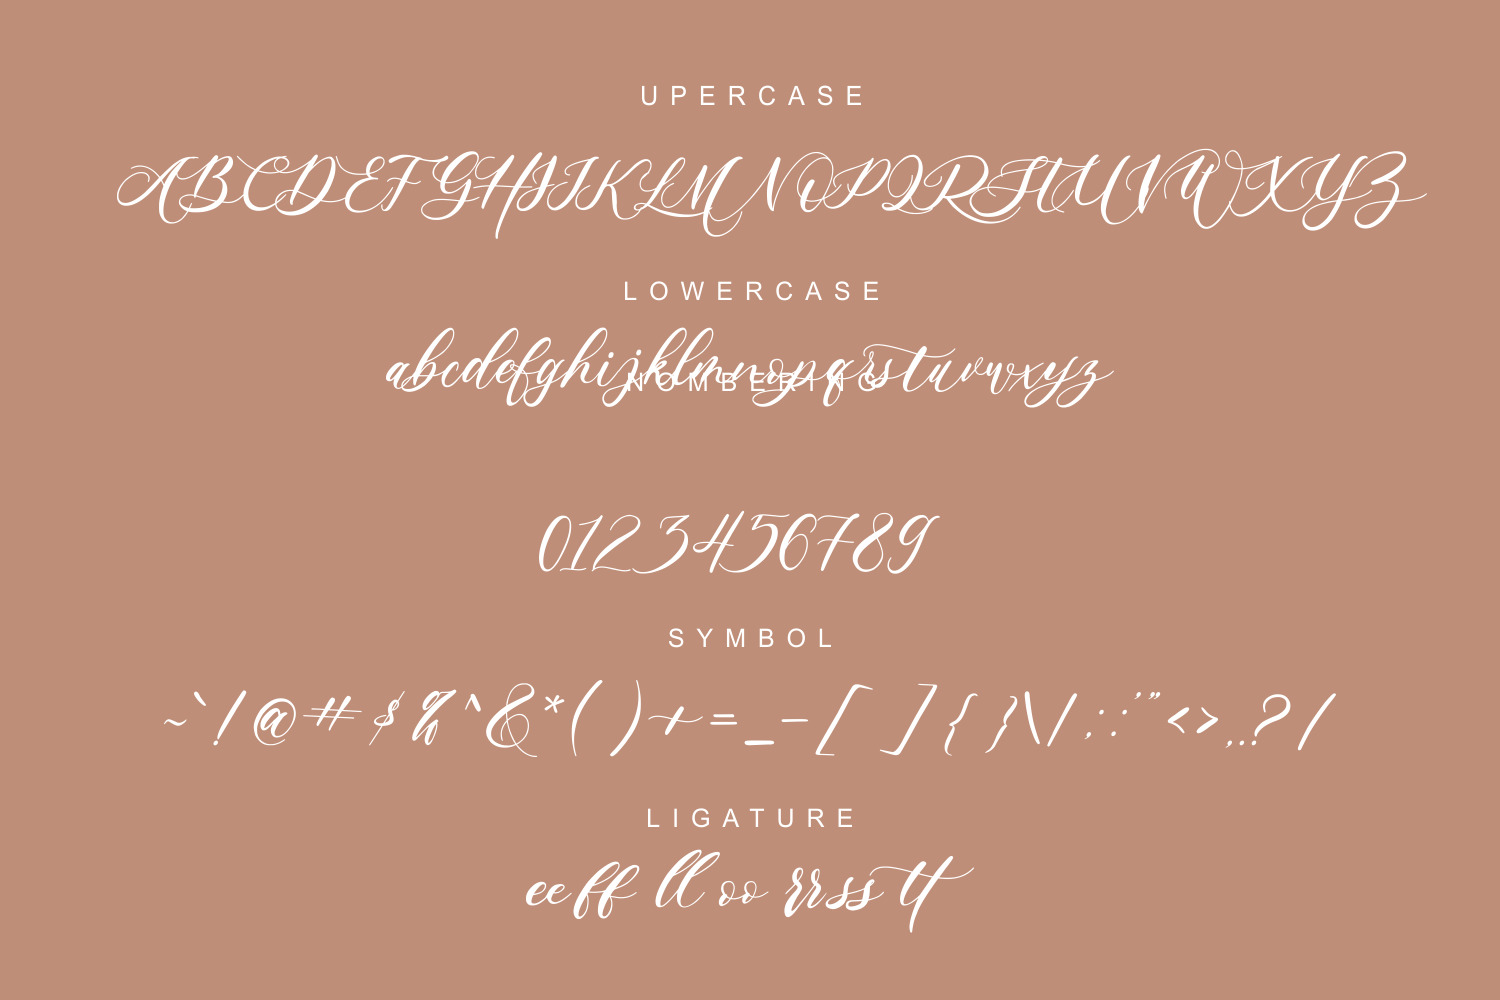 UPERCASE
ABCDEFGHIJKLMNOPQRSTUVWXYZ
LOWERCASE
abcdefghijklmnopqrstuvwxyz
NOMBERING
0123456789
SYMBOL
~`!@#$%^&*()+=_-[]{}\/:;'"<>,..?/
LIGATURE
eeff ll oo rrss tt